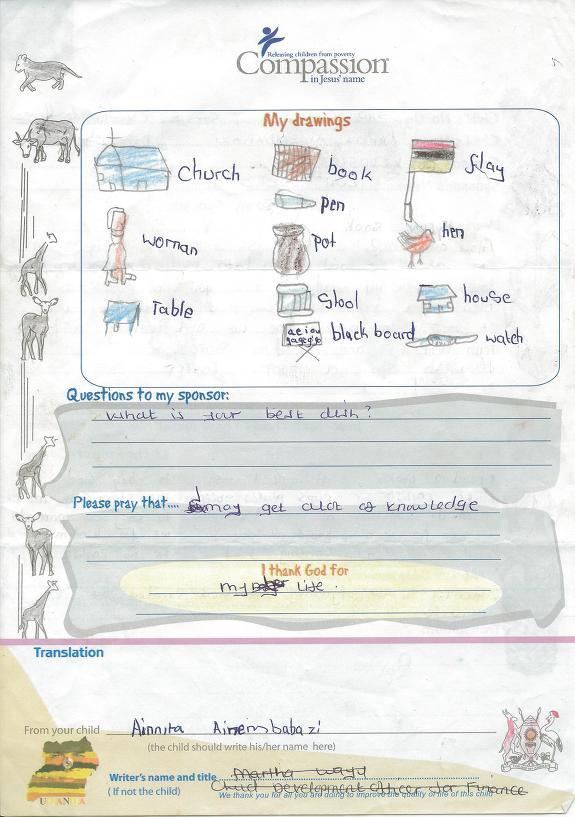 Releasing children from poverty
Compassion
in Jesus' name
My drawings
Church book flag
pen
woman pot hen
Table Stool house
a e i o u
black board watch
Questions to my sponsor:
What is your best dish?
Please pray that.... I may get alot of knowledge
I thank God for
my Life.
Translation
From your child Ainnita Airembabazi
(the child should write his/her name here)
Writer's name and title Martha
( If not the child) Child Development Officer for Finance
We thank you for all you are doing to improve the quality of life of this child
UGANDA